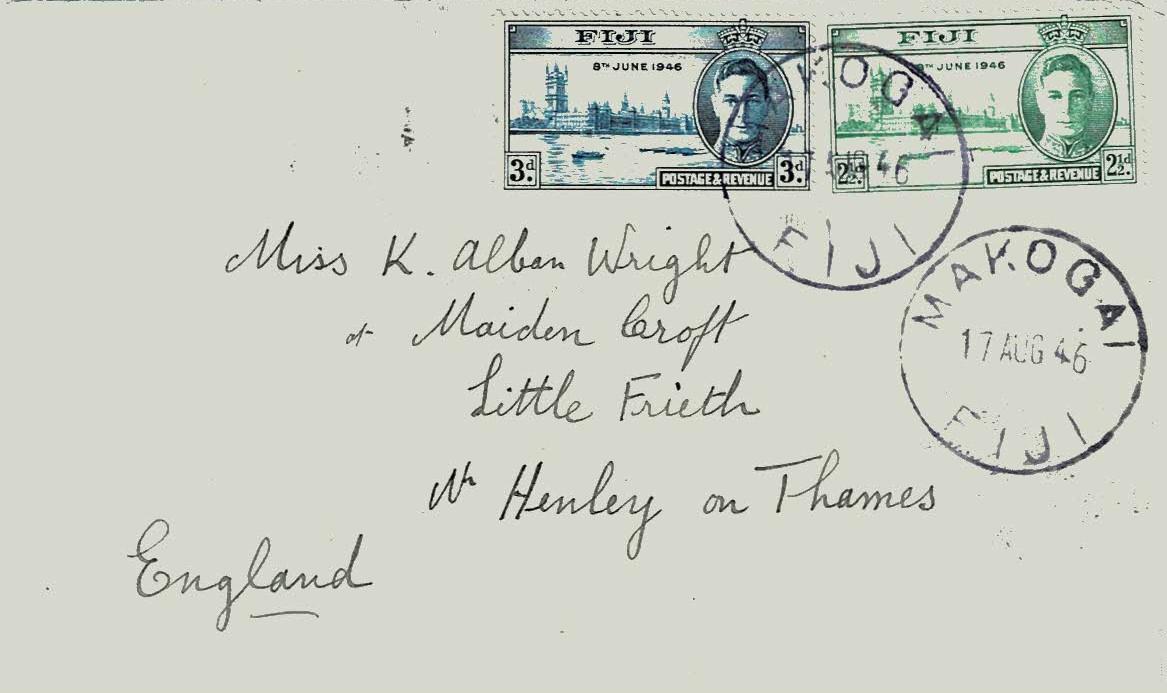 FIJI
8TH JUNE 1946
3d
POSTAGE & REVENUE
3d
FIJI
8TH JUNE 1946
2½d
POSTAGE & REVENUE
2½d
46
FIJI
MAKOGAI
17 AUG 46
FIJI
Miss K. Alban Wright
at Maiden Croft
Little Frieth
Nr Henley on Thames
England